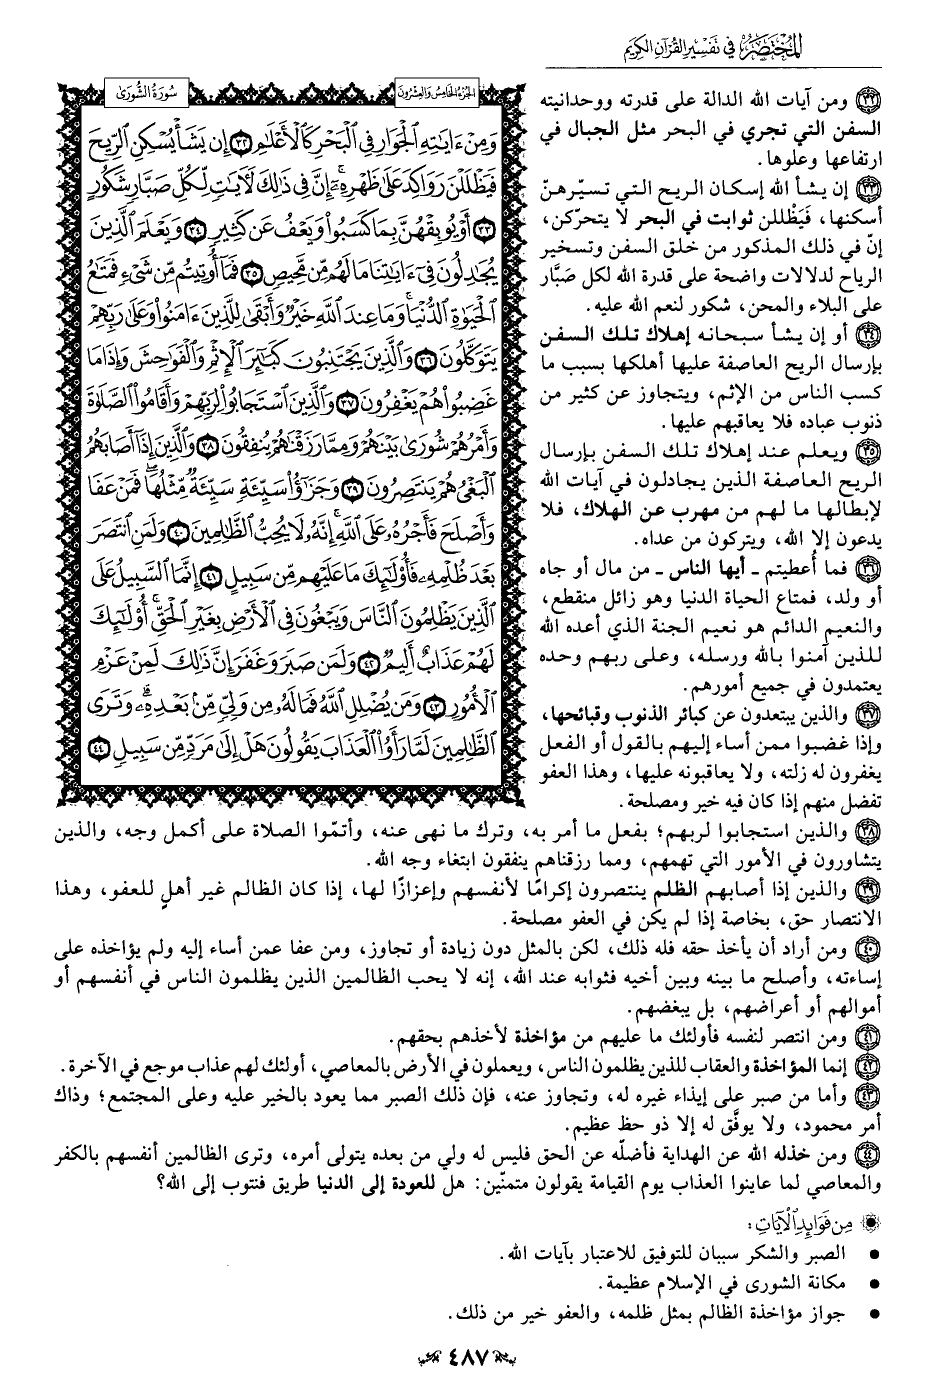 المختصر في تفسير القرآن الكريم
الجزء الخامس والعشرون
سورة الشورى
وَمِنْ ءَايَٰتِهِ ٱلْجَوَارِ فِى ٱلْبَحْرِ كَٱلْأَعْلَٰمِ ٣٢ إِن يَشَأْ يُسْكِنِ ٱلرِّيحَ
فَيَظْلَلْنَ رَوَاكِدَ عَلَىٰ ظَهْرِهِۦٓ ۚ إِنَّ فِى ذَٰلِكَ لَءَايَٰتٍ لِّكُلِّ صَبَّارٍ شَكُورٍ
٣٣ أَوْ يُوبِقْهُنَّ بِمَا كَسَبُوا۟ وَيَعْفُ عَن كَثِيرٍ ٣٤ وَيَعْلَمَ ٱلَّذِينَ
يُجَٰدِلُونَ فِىٓ ءَايَٰتِنَا مَا لَهُم مِّن مَّحِيصٍ ٣٥ فَمَآ أُوتِيتُم مِّن شَىْءٍ فَمَتَٰعُ
ٱلْحَيَوٰةِ ٱلدُّنْيَا ۖ وَمَا عِندَ ٱللَّهِ خَيْرٌ وَأَبْقَىٰ لِلَّذِينَ ءَامَنُوا۟ وَعَلَىٰ رَبِّهِمْ
يَتَوَكَّلُونَ ٣٦ وَٱلَّذِينَ يَجْتَنِبُونَ كَبَٰٓئِرَ ٱلْإِثْمِ وَٱلْفَوَٰحِشَ وَإِذَا مَا
غَضِبُوا۟ هُمْ يَغْفِرُونَ ٣٧ وَٱلَّذِينَ ٱسْتَجَابُوا۟ لِرَبِّهِمْ وَأَقَامُوا۟ ٱلصَّلَوٰةَ
وَأَمْرُهُمْ شُورَىٰ بَيْنَهُمْ وَمِمَّا رَزَقْنَٰهُمْ يُنفِقُونَ ٣٨ وَٱلَّذِينَ إِذَآ أَصَابَهُمُ
ٱلْبَغْىُ هُمْ يَنتَصِرُونَ ٣٩ وَجَزَٰٓؤُا۟ سَيِّئَةٍ سَيِّئَةٌ مِّثْلُهَا ۖ فَمَنْ عَفَا
وَأَصْلَحَ فَأَجْرُهُۥ عَلَى ٱللَّهِ ۚ إِنَّهُۥ لَا يُحِبُّ ٱلظَّٰلِمِينَ ٤٠ وَلَمَنِ ٱنتَصَرَ
بَعْدَ ظُلْمِهِۦ فَأُو۟لَٰٓئِكَ مَا عَلَيْهِم مِّن سَبِيلٍ ٤١ إِنَّمَا ٱلسَّبِيلُ عَلَى
ٱلَّذِينَ يَظْلِمُونَ ٱلنَّاسَ وَيَبْغُونَ فِى ٱلْأَرْضِ بِغَيْرِ ٱلْحَقِّ ۚ أُو۟لَٰٓئِكَ
لَهُمْ عَذَابٌ أَلِيمٌ ٤٢ وَلَمَن صَبَرَ وَغَفَرَ إِنَّ ذَٰلِكَ لَمِنْ عَزْمِ
ٱلْأُمُورِ ٤٣ وَمَن يُضْلِلِ ٱللَّهُ فَمَا لَهُۥ مِن وَلِىٍّ مِّنۢ بَعْدِهِۦ ۗ وَتَرَى
ٱلظَّٰلِمِينَ لَمَّا رَأَوُا۟ ٱلْعَذَابَ يَقُولُونَ هَلْ إِلَىٰ مَرَدٍّ مِّن سَبِيلٍ ٤٤
٣٢ ومن آيات الله الدالة على قدرته ووحدانيته
السفن التي تجري في البحر مثل الجبال في
ارتفاعها وعلوها.
٣٣ إن يشأ الله إسكان الريح التي تسيّرهنّ
أسكنها، فَيَظْللن ثوابت في البحر لا يتحركن،
إنّ في ذلك المذكور من خلق السفن وتسخير
الرياح لدلالات واضحة على قدرة الله لكل صَبَّار
على البلاء والمحن، شكور لنعم الله عليه.
٣٤ أو إن يشأ سبحانه إهلاك تلك السفن
بإرسال الريح العاصفة عليها أهلكها بسبب ما
كسب الناس من الإثم، ويتجاوز عن كثير من
ذنوب عباده فلا يعاقبهم عليها.
٣٥ ويعلم عند إهلاك تلك السفن بإرسال
الريح العاصفة الذين يجادلون في آيات الله
لإبطالها ما لهم من مهرب عن الهلاك، فلا
يدعون إلا الله، ويتركون من عداه.
٣٦ فما أُعطيتم ـ أيها الناس ـ من مال أو جاه
أو ولد، فمتاع الحياة الدنيا وهو زائل منقطع،
والنعيم الدائم هو نعيم الجنة الذي أعده الله
للذين آمنوا بالله ورسله، وعلى ربهم وحده
يعتمدون في جميع أمورهم.
٣٧ والذين يبتعدون عن كبائر الذنوب وقبائحها،
وإذا غضبوا ممن أساء إليهم بالقول أو الفعل
يغفرون له زلته، ولا يعاقبونه عليها، وهذا العفو
تفضل منهم إذا كان فيه خير ومصلحة.
٣٨ والذين استجابوا لربهم؛ بفعل ما أمر به، وترك ما نهى عنه، وأتمّوا الصلاة على أكمل وجه، والذين
يتشاورون في الأمور التي تهمهم، ومما رزقناهم ينفقون ابتغاء وجه الله.
٣٩ والذين إذا أصابهم الظلم ينتصرون إكرامًا لأنفسهم وإعزازًا لها، إذا كان الظالم غير أهلٍ للعفو، وهذا
الانتصار حق، بخاصة إذا لم يكن في العفو مصلحة.
٤٠ ومن أراد أن يأخذ حقه فله ذلك، لكن بالمثل دون زيادة أو تجاوز، ومن عفا عمن أساء إليه ولم يؤاخذه على
إساءته، وأصلح ما بينه وبين أخيه فثوابه عند الله، إنه لا يحب الظالمين الذين يظلمون الناس في أنفسهم أو
أموالهم أو أعراضهم، بل يبغضهم.
٤١ ومن انتصر لنفسه فأولئك ما عليهم من مؤاخذة لأخذهم بحقهم.
٤٢ إنما المؤاخذة والعقاب للذين يظلمون الناس، ويعملون في الأرض بالمعاصي، أولئك لهم عذاب موجع في الآخرة.
٤٣ وأما من صبر على إيذاء غيره له، وتجاوز عنه، فإن ذلك الصبر مما يعود بالخير عليه وعلى المجتمع؛ وذاك
أمر محمود، ولا يوفَّق له إلا ذو حظ عظيم.
٤٤ ومن خذله الله عن الهداية فأضلّه عن الحق فليس له ولي من بعده يتولى أمره، وترى الظالمين أنفسهم بالكفر
والمعاصي لما عاينوا العذاب يوم القيامة يقولون متمنّين: هل للعودة إلى الدنيا طريق فنتوب إلى الله؟
من فوائد الآيات:
• الصبر والشكر سببان للتوفيق للاعتبار بآيات الله.
• مكانة الشورى في الإسلام عظيمة.
• جواز مؤاخذة الظالم بمثل ظلمه، والعفو خير من ذلك.
٤٨٧